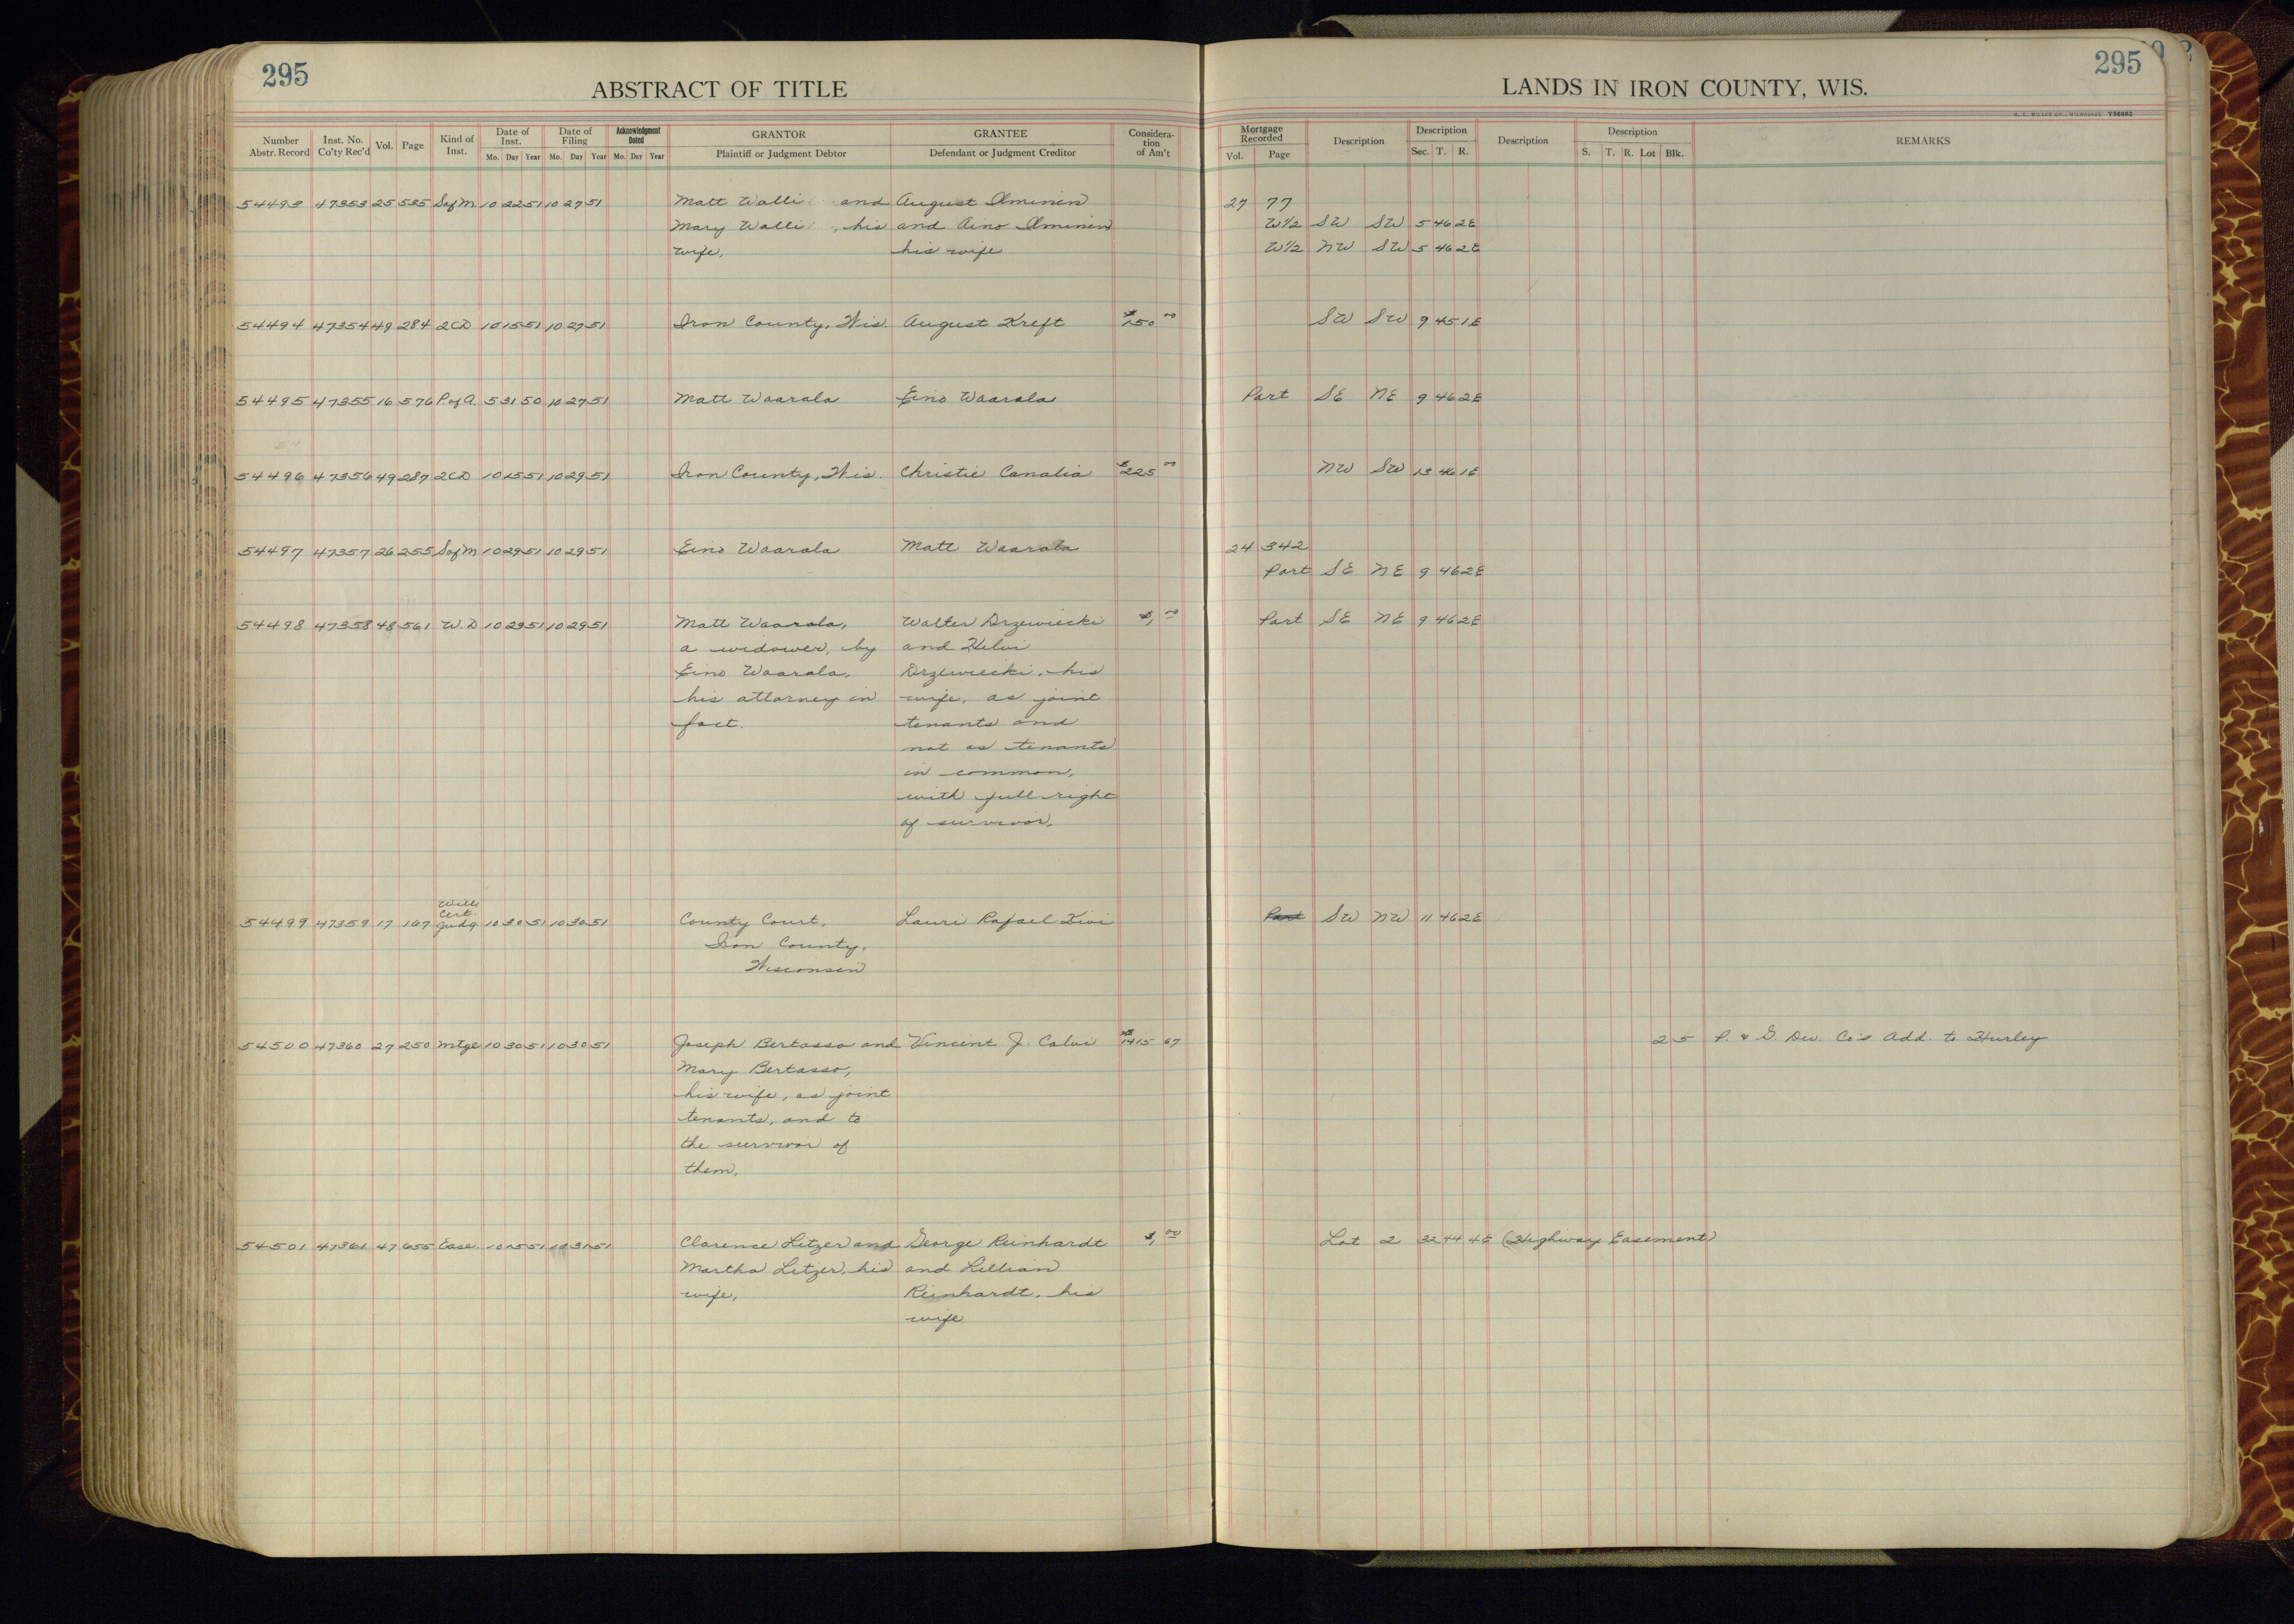 295
ABSTRACT OF TITLE
Number Abstr. Record
Inst. No. Co'ty Rec'd
Vol.
Page
Kind of Inst.
Date of Inst.
Mo. Day Year
Date of Filing
Mo. Day Year
Acknowledgment Dated
Mo. Day Year
GRANTOR
Plaintiff or Judgment Debtor
GRANTEE
Defendant or Judgment Creditor
Considera-tion of Am't
54493 47353 25 535 Sof M. 10 22 51 10 27 51 Matt Walli and August Ilminen
Mary Walli, his and Aino Ilminen
wife, his wife
54494 47354 49 284 2CD 10 15 51 10 27 51 Iron County, Wis. August Kreft $150 00
54495 47355 16 576 P. of A. 5 31 50 10 27 51 Matt Waarala Eino Waarala
54496 47356 49 287 2CD 10 15 51 10 29 51 Iron County, Wis. Christie Canalia $225 00
54497 47357 26 255 Sof M 10 29 51 10 29 51 Eino Waarala Matt Waarala
54498 47358 48 561 W. D 10 29 51 10 29 51 Matt Waarala, Walter Drzewiecki $1, 00
a widower, by and Helvi
Eino Waarala, Drzewiecki, his
his attorney in wife, as joint
fact. tenants and
not as tenants
in common,
with full right
of survivor.
Will
Cert.
54499 47359 17 167 Judg 10 30 51 10 30 51 County Court, Lauri Rafael Kivi
Iron County,
Wisconsin
54500 47360 27 250 Mtge 10 30 51 10 30 51 Joseph Bertasso and Vincent J. Calvi $1415 67
Mary Bertasso,
his wife, as joint
tenants, and to
the survivor of
them.
54501 47361 47 655 Ease. 10 15 51 10 31 51 Clarence Litzer and George Reinhardt $1, 00
Martha Litzer, his and Lillian
wife, Reinhardt, his
wife
295
LANDS IN IRON COUNTY, WIS.
H. C. MILLER CO., MILWAUKEE V56882
Mortgage Recorded
Vol. Page
Description
Description
Sec. T. R.
Description
Description
S. T. R. Lot Blk.
REMARKS
27 77
W½ SW SW 5 46 2E
W½ NW SW 5 46 2E
SW SW 9 45 1E
Part SE NE 9 46 2E
NW SW 13 46 1E
24 342
Part SE NE 9 46 2E
Part SE NE 9 46 2E
Part SW NW 11 46 2E
2 5 P. & G. Dev. Co's Add. to Hurley
Lot 2 22 44 4E (Highway Easement)